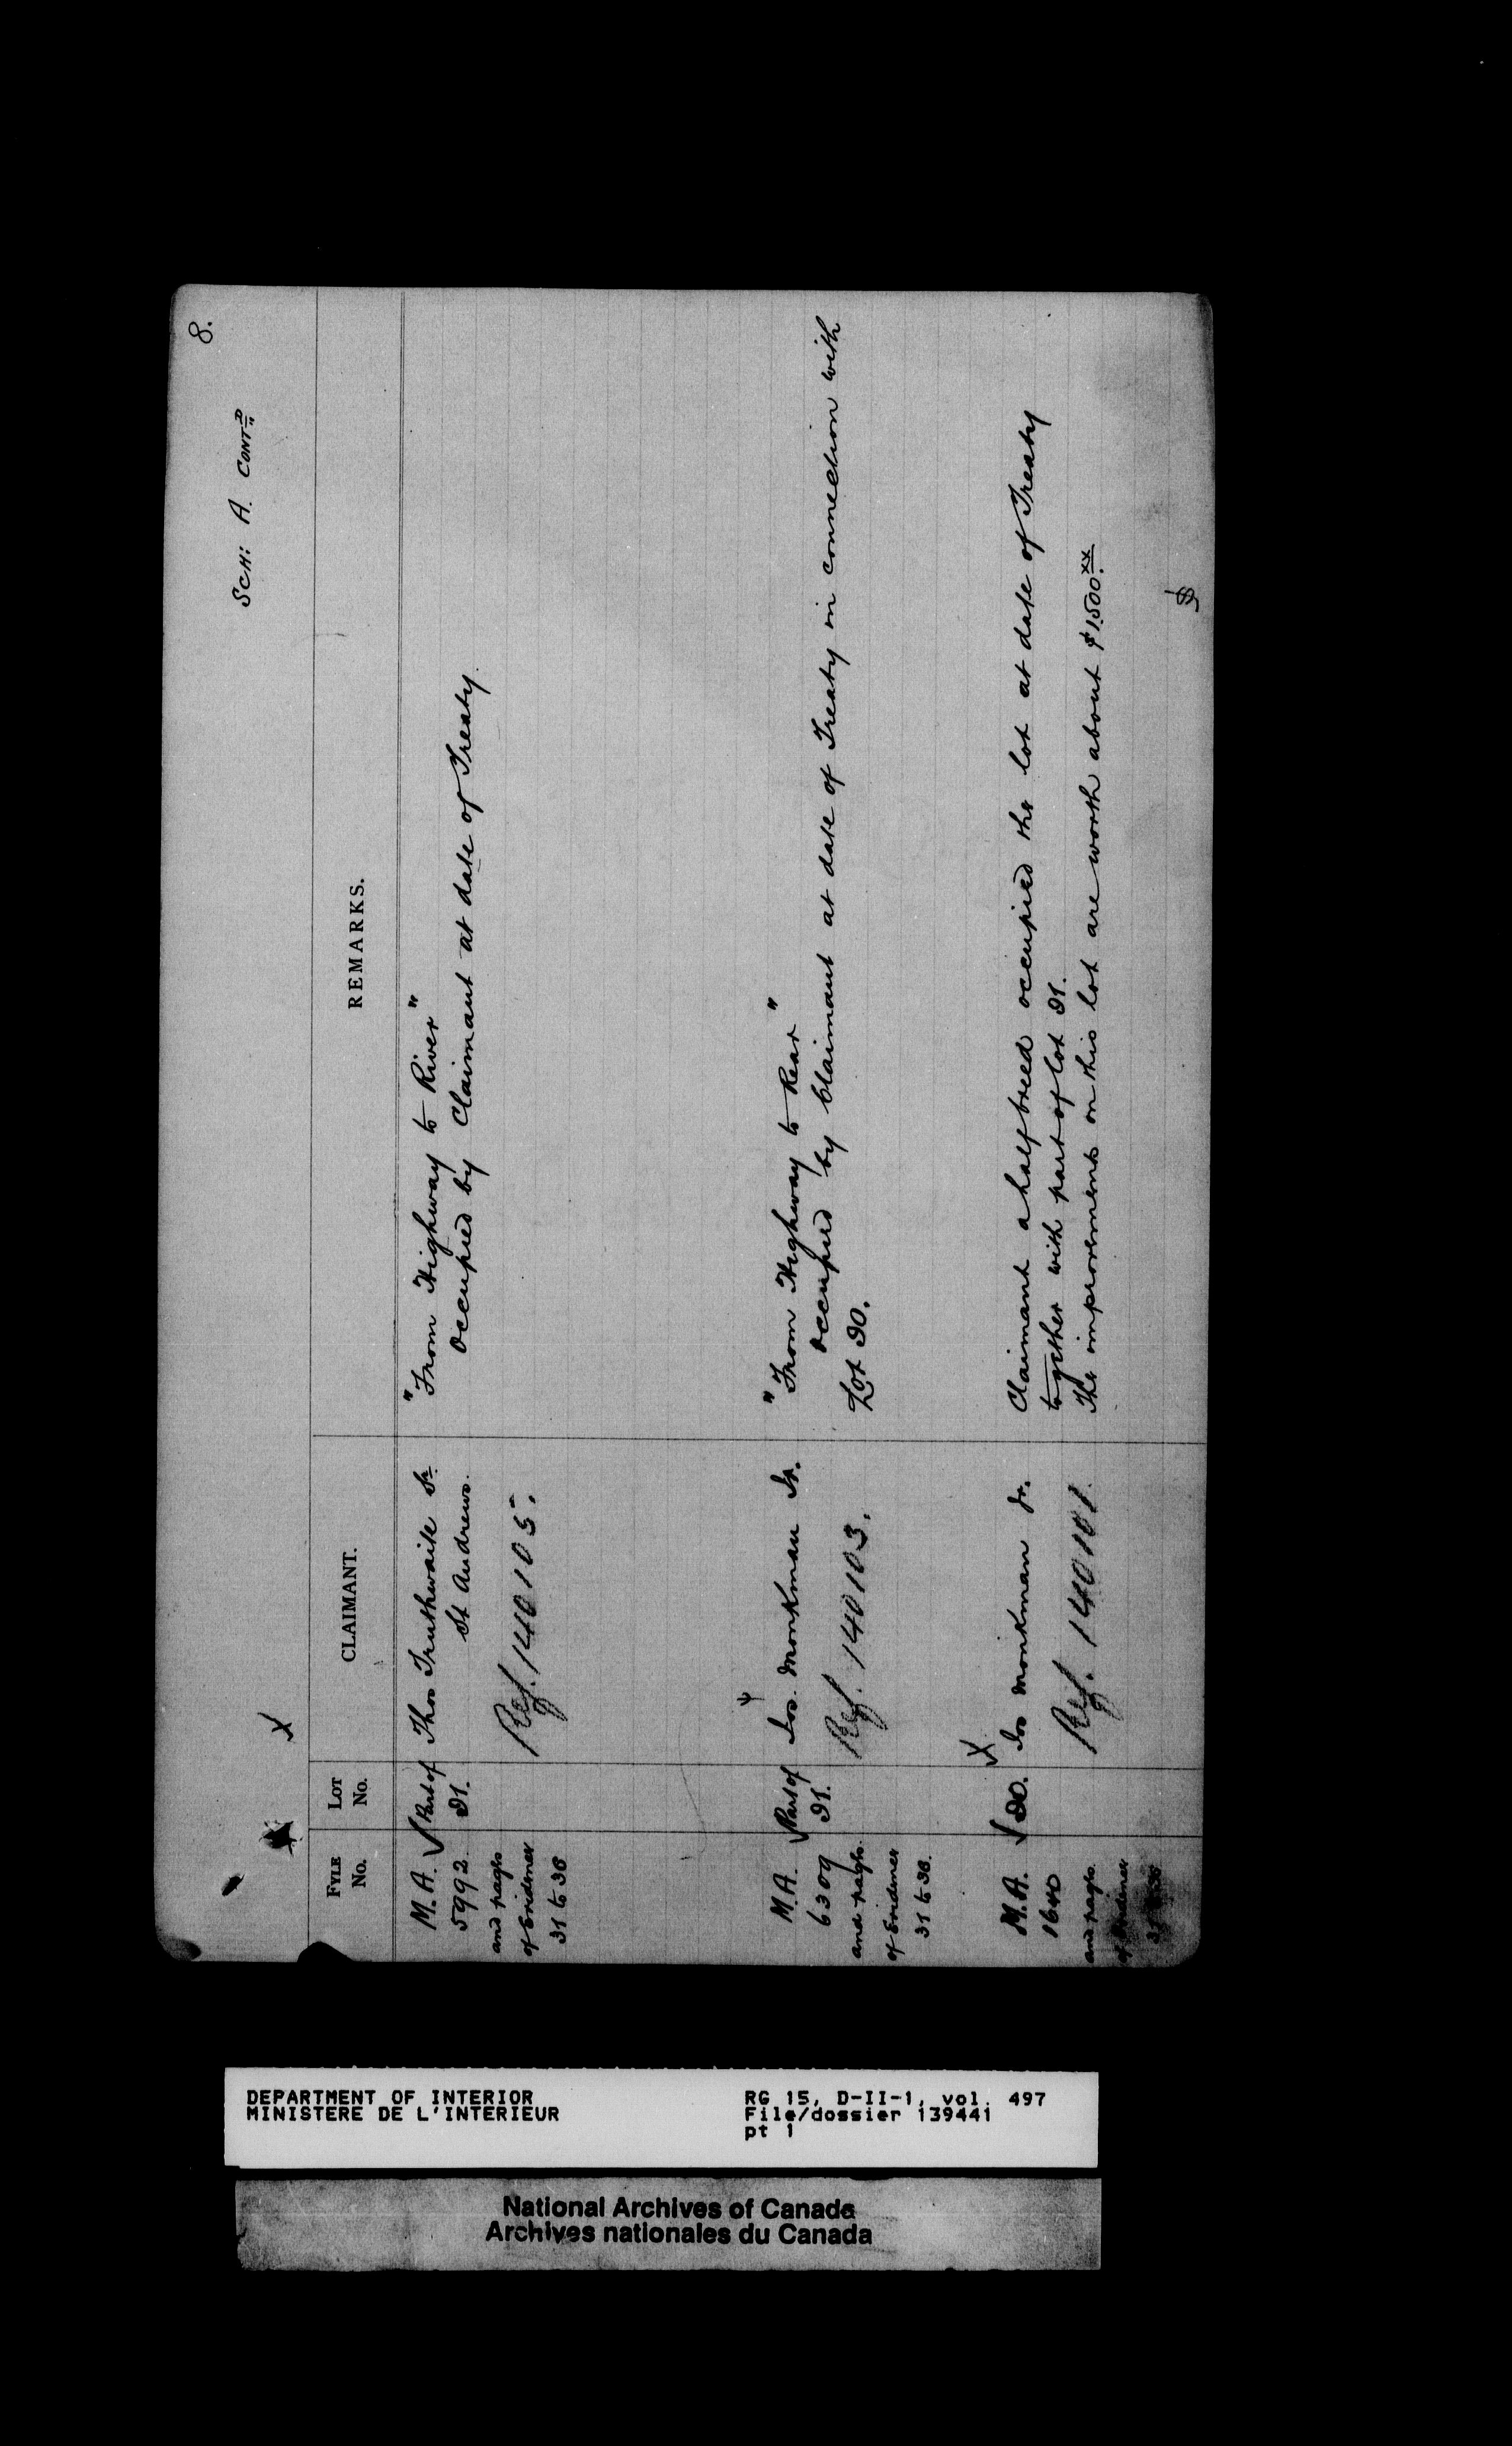 8.
SCH: A. CONTD
FYLE No.
LOT No.
CLAIMANT.
REMARKS.
M.A. 5992 and pages of Evidence 31 to 36
Part of 21.
Thos Truthwaite Sr St Andrews.
Ref. 140105.
"From Highway to River"
occupied by Claimant at date of Treaty
M.A. 6309 and pages of Evidence 31 to 36.
Part of 21.
Jos. Monkman Jr.
Ref. 140103.
"From Highway to Rear"
occupied by Claimant at date of Treaty in connection with
Lot 20.
M.A. 1640 and pages of Evidence
20.
Jos Monkman Jr.
Ref. 140101.
Claimant a halfbreed occupied the lot at date of Treaty
together with part of lot 21.
The improvements on this lot are worth about $1500.xx
DEPARTMENT OF INTERIOR
MINISTERE DE L'INTERIEUR
RG 15, D-II-1, vol. 497
File/dossier 139441
pt 1
National Archives of Canada
Archives nationales du Canada